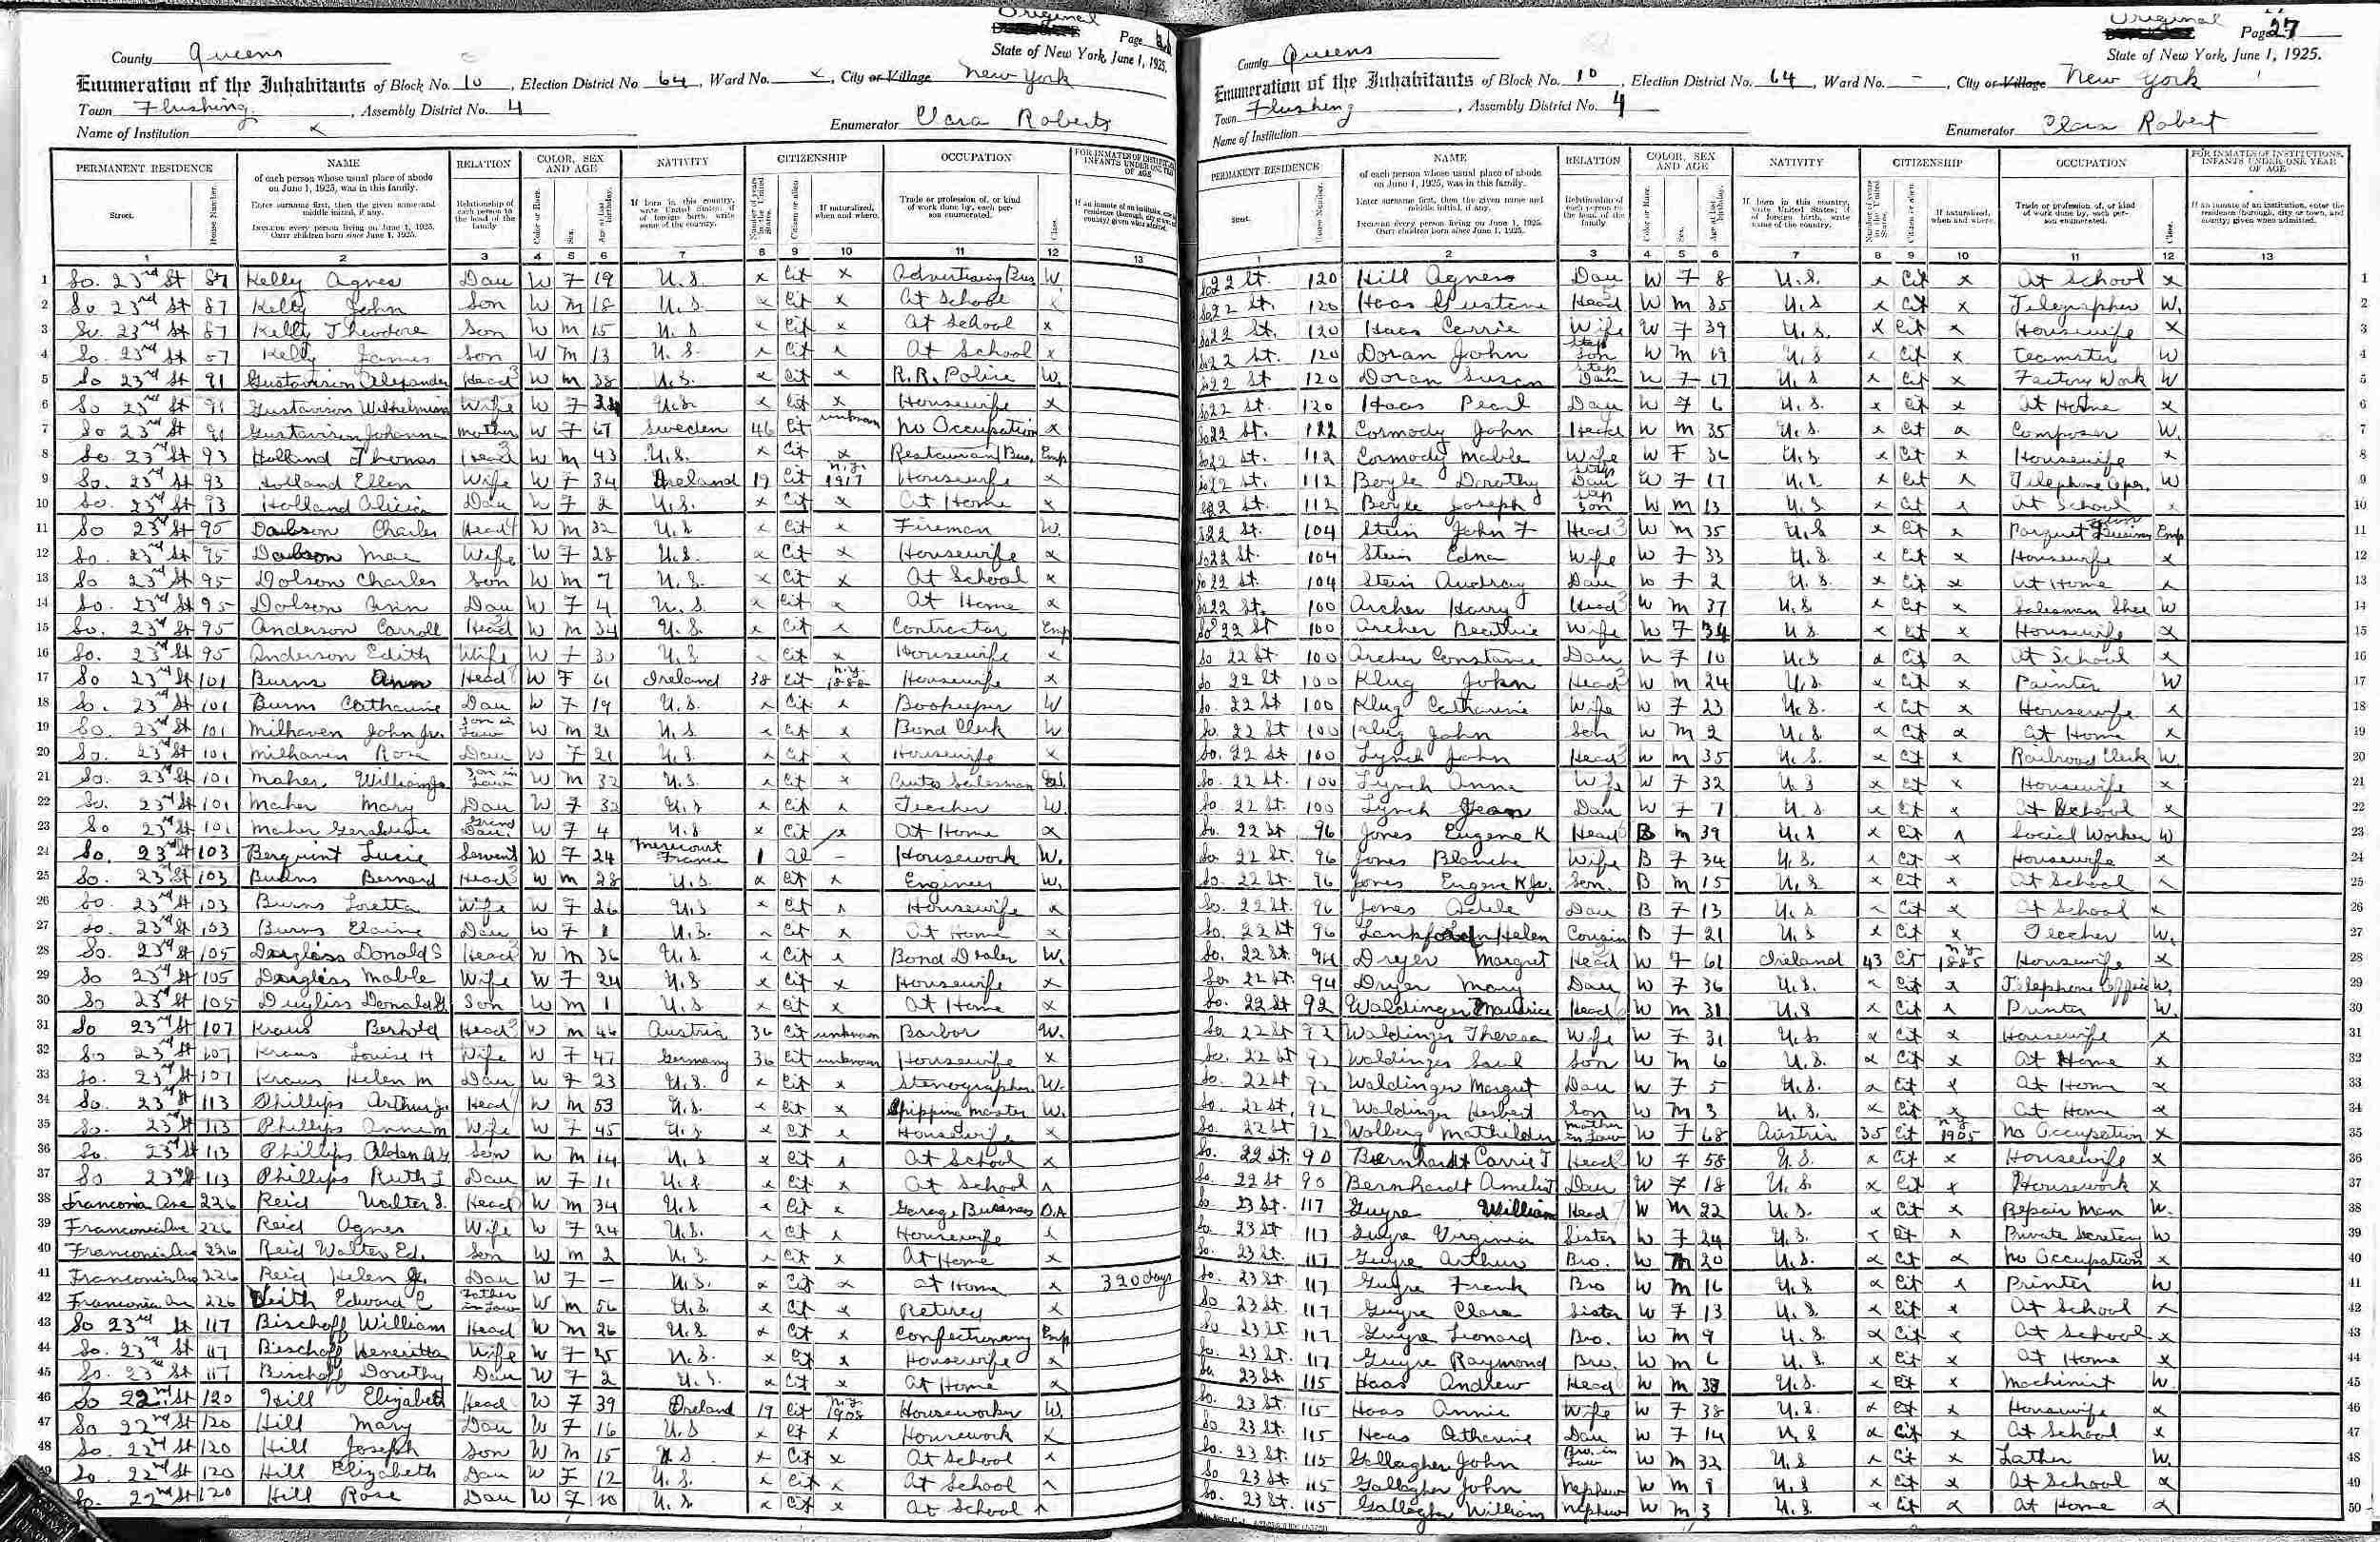 Original
Page
County Queens
State of New York, June 1, 1925.
Enumeration of the Inhabitants of Block No. 10, Election District No. 64, Ward No. x, City or Village New York
Town Flushing, Assembly District No. 4
Name of Institution x
Enumerator Clara Roberts
PERMANENT RESIDENCE NAME RELATION COLOR, SEX AND AGE NATIVITY CITIZENSHIP OCCUPATION FOR INMATES OF INSTITUTIONS, INFANTS UNDER ONE YEAR OF AGE
1 2 3 4 5 6 7 8 9 10 11 12 13
1 So. 23rd St 87 Kelly Agnes Dau W F 19 U.S. x Cit x Advertising Bus W
2 So 23rd St 87 Kelly John Son W M 18 U.S. x Cit x At School x
3 So. 23rd St 87 Kelly Theodore Son W M 15 U.S x Cit x At School x
4 So. 23rd St 87 Kelly James Son W M 13 U.S. x Cit x At School x
5 So 23rd St 91 Gustavison Alexander Head W M 38 U.S. x Cit x R.R. Police W.
6 So 23rd St 91 Gustavison Wilhelmina Wife W F U.S. x Cit x Housewife x
7 So 23rd St 91 Gustavison Johanna Mother W F 67 Sweden 46 Cit unknown No Occupation x
8 So. 23rd St 93 Holland Thomas Head W M 43 U.S. x Cit x Restaurant Bus. Emp
9 So. 23rd St 93 Holland Ellen Wife W F 34 Ireland 19 Cit N.Y. 1917 Housewife x
10 So. 23rd St 93 Holland Alicia Dau W F 2 U.S. x Cit x At Home x
11 So 23rd St 95 Dolson Charles Head W M 32 U.S x Cit x Fireman W.
12 So. 23rd St 95 Dolson Mae Wife W F 28 U.S. x Cit x Housewife x
13 So 23rd St 95 Dolson Charles Son W M 7 U.S. x Cit x At School x
14 So. 23rd St 95 Dolson Ann Dau W F 4 U.S. x Cit x At Home x
15 So. 23rd St 95 Anderson Carroll Head W M 34 U.S. x Cit x Contractor Emp
16 So. 23rd St 95 Anderson Edith Wife W F 30 U.S. x Cit x Housewife x
17 So 23rd St 101 Burns Ann Head W F 61 Ireland 38 Cit N.Y. 1888 Housewife x
18 So. 23rd St 101 Burns Catharine Dau W F 19 U.S. x Cit x Bookeeper W
19 So. 23rd St 101 Milhaven John Jr. Son in Law W M 21 U.S x Cit x Bond Clerk W
20 So. 23rd St 101 Milhaven Rose Dau W F 21 U.S. x Cit x Housewife x
21 So. 23rd St 101 Maher, William Son in Law W M 32 U.S. x Cit x Auto Salesman W.
22 So. 23rd St 101 Maher Mary Dau W F 32 U.S x Cit x Teacher W.
23 So 23rd St 101 Maher Geraldine Grand Dau. W F 4 U.S x Cit x At Home x
24 So. 23rd St 103 Berquint Lucie Servent W F 24 Mirecourt France 1 Al - Housework W.
25 So. 23rd St 103 Burns Bernard Head W M 28 U.S. x Cit x Engineer W.
26 So. 23rd St 103 Burns Loretta Wife W F 26 U.S x Cit x Housewife x
27 So. 23rd St 103 Burns Elaine Dau W F 1 U.S. x Cit x At Home x
28 So. 23rd St 105 Dugliss Donald S Head W M 36 U.S x Cit x Bond Dealer W.
29 So 23rd St 105 Dugliss Mable Wife W F 24 U.S x Cit x Housewife x
30 So 23rd St 105 Dugliss Donald S. Son W M 1 U.S x Cit x At Home x
31 So 23rd St 107 Kraus Berhold Head W M 46 Austria 36 Cit unknown Barbor W.
32 So 23rd St 107 Kraus Louise H Wife W F 47 Germany 36 Cit unknown Housewife x
33 So. 23rd St 107 Kraus Helen M Dau W F 23 U.S. x Cit x Stenographer W.
34 So. 23rd St 113 Phillips Arthur J. Head W M 53 U.S. x Cit x Shipping Master W.
35 So. 23rd St 113 Phillips Anne M Wife W F 45 U.S x Cit x Housewife x
36 So. 23rd St 113 Phillips Alden Son W M 14 U.S x Cit x At School x
37 So 23rd St 113 Phillips Ruth L Dau W F 11 U.S x Cit x At School x
38 Franconia Ave 226 Reid Walter S. Head W M 34 U.S x Cit x Garage Business O.A
39 Franconia Ave 226 Reid Agnes Wife W F 24 U.S. x Cit x Housewife x
40 Franconia Ave 226 Reid Walter Ed. Son W M 2 U.S. x Cit x At Home x
41 Franconia Ave 226 Reid Helen Dau W F - U.S. x Cit x At Home x 320 days
42 Franconia Ave 226 Edward E Father in Law W M 56 U.S. x Cit x Retired x
43 So 23rd St 117 Bischoff William Head W M 26 U.S x Cit x Confectionary Emp
44 So. 23rd St 117 Bischoff Henrietta Wife W F 25 U.S. x Cit x Housewife x
45 So. 23rd St 117 Bischoff Dorothy Dau W F 2 U.S. x Cit x At Home x
46 So 22nd St 120 Hill Elizabeth Head W F 39 Ireland 19 Cit N.Y. 1908 Houseworker W.
47 So 22nd St 120 Hill Mary Dau W F 16 U.S x Cit x Housework x
48 So. 22nd St 120 Hill Joseph Son W M 15 U.S. x Cit x At School x
49 So. 22nd St 120 Hill Elizabeth Dau W F 12 U.S. x Cit x At School x
So. 22nd St 120 Hill Rose Dau W F 10 U.S. x Cit x At School x
Original
Page 27
County Queens
State of New York, June 1, 1925.
Enumeration of the Inhabitants of Block No. 10, Election District No. 64, Ward No. -, City or Village New York
Town Flushing, Assembly District No. 4
Name of Institution
Enumerator Clara Robert
PERMANENT RESIDENCE NAME RELATION COLOR, SEX AND AGE NATIVITY CITIZENSHIP OCCUPATION FOR INMATES OF INSTITUTIONS, INFANTS UNDER ONE YEAR OF AGE
1 2 3 4 5 6 7 8 9 10 11 12 13
So 22 St 120 Hill Agness Dau W F 8 U.S. x Cit x At School x 1
So 22 St. 120 Haas Gustave Head W M 35 U.S x Cit x Telegrapher W. 2
So 22 St. 120 Haas Carrie Wife W F 39 U.S. x Cit x Housewife x 3
So 22 St. 120 Doran John Step Son W M 19 U.S x Cit x Teamster W 4
So 22 St 120 Doran Susan Step Dau W F 17 U.S x Cit x Factory Work W 5
So 22 St. 120 Haas Pearl Dau W F 6 U.S. x Cit x At Home x 6
So 22 St. 112 Cormody John Head W M 35 U.S. x Cit x Composer W. 7
So 22 St. 112 Cormody Mable Wife W F 36 U.S x Cit x Housewife x 8
So 22 St. 112 Boyle Dorothy Step Dau W F 17 U.S x Cit x Telephone Oper. W 9
So 22 St. 112 Boyle Joseph Step Son W M 13 U.S x Cit x At School x 10
So 22 St. 104 Stein John F Head W M 35 U.S x Cit x Parquet Floor Business Emp 11
So 22 St. 104 Stein Edna Wife W F 33 U.S. x Cit x Housewife x 12
So 22 St. 104 Stein Audray Dau W F 2 U.S. x Cit x At Home x 13
So 22 St. 100 Archer Harry Head W M 37 U.S. x Cit x Salesman Shoe W 14
So 22 St 100 Archer Beathie Wife W F 34 U.S. x Cit x Housewife x 15
So 22 St 100 Archer Constance Dau W F 10 U.S x Cit x At School x 16
So 22 St 100 Klug John Head W M 24 U.S. x Cit x Painter W 17
So. 22 St 100 Klug Catharine Wife W F 23 U.S. x Cit x Housewife x 18
So. 22 St 100 Klug John Son W M 2 U.S x Cit x At Home x 19
So. 22 St 100 Lynch John Head W M 35 U.S. x Cit x Railroad Clerk W. 20
So. 22 St. 100 Lynch Anna Wife W F 32 U.S x Cit x Housewife x 21
So. 22 St. 100 Lynch Jean Dau W F 7 U.S x Cit x At School x 22
So. 22 St. 96 Jones Eugene K Head B M 39 U.S x Cit x Social Worker W 23
So. 22 St. 96 Jones Blanche Wife B F 34 U.S. x Cit x Housewife x 24
So. 22 St. 96 Jones Eugene K Jr. Son. B M 15 U.S x Cit x At School x 25
So. 22 St. 96 Jones Adele Dau B F 13 U.S x Cit x At School x 26
So. 22 St 96 Helen Cousin B F 21 U.S x Cit x Teacher W. 27
So. 22 St. 94 Dryer Margret Head W F 61 Ireland 43 Cit N.Y 1885 Housewife x 28
So. 22 St. 94 Dryer Mary Dau W F 36 U.S. x Cit x Telephone Office W. 29
So. 22 St 92 Waldinger Maurice Head W M 31 U.S x Cit x Printer W. 30
So. 22 St 92 Waldinger Theresa Wife W F 31 U.S x Cit x Housewife x 31
So. 22 St 92 Waldinger Saul Son W M 6 U.S. x Cit x At Home x 32
So. 22 St 92 Waldinger Margret Dau W F 5 U.S. x Cit x At Home x 33
So. 22 St. 92 Waldinger Herbert Son W M 3 U.S. x Cit x At Home x 34
So. 22 St 92 Wolberg Mathilda Mother in Law W F 68 Austria 35 Cit N.Y 1905 No Occupation x 35
So. 22 St. 90 Bernhardt Carrie T Head W F 58 U.S. x Cit x Housewife x 36
So. 22 St 90 Bernhardt Amelia Dau W F 18 U.S. x Cit x Housework x 37
So 23 St. 117 Guyre William Head W M 22 U.S. x Cit x Repair Man W. 38
So. 23 St 117 Guyre Virginia Sister W F 24 U.S. x Cit x Private Secretary W 39
So. 23 St. 117 Guyre Arthur Bro. W M 20 U.S. x Cit x No Occupation x 40
So. 23 St. 117 Guyre Frank Bro W M 16 U.S x Cit x Printer W 41
So 23 St. 117 Guyre Clara Sister W F 13 U.S. x Cit x At School x 42
So 23 St. 117 Guyre Leonard Bro. W M 9 U.S. x Cit x At School x 43
So. 23 St. 117 Guyre Raymond Bro. W M 6 U.S. x Cit x At Home x 44
So. 23 St. 115 Haas Andrew Head W M 38 U.S. x Cit x Machinist W. 45
So. 23 St. 115 Haas Annie Wife W F 38 U.S. x Cit x Housewife x 46
So. 23 St. 115 Haas Catharine Dau W F 14 U.S x Cit x At School x 47
So. 23 St. 115 Gallagher John Bro. in Law W M 32 U.S x Cit x Lather W. 48
So 23 St. 115 Gallagher John Nephew W M 8 U.S x Cit x At School x 49
So. 23 St. 115 Gallagher William Nephew W M 3 U.S. x Cit x At Home x 50